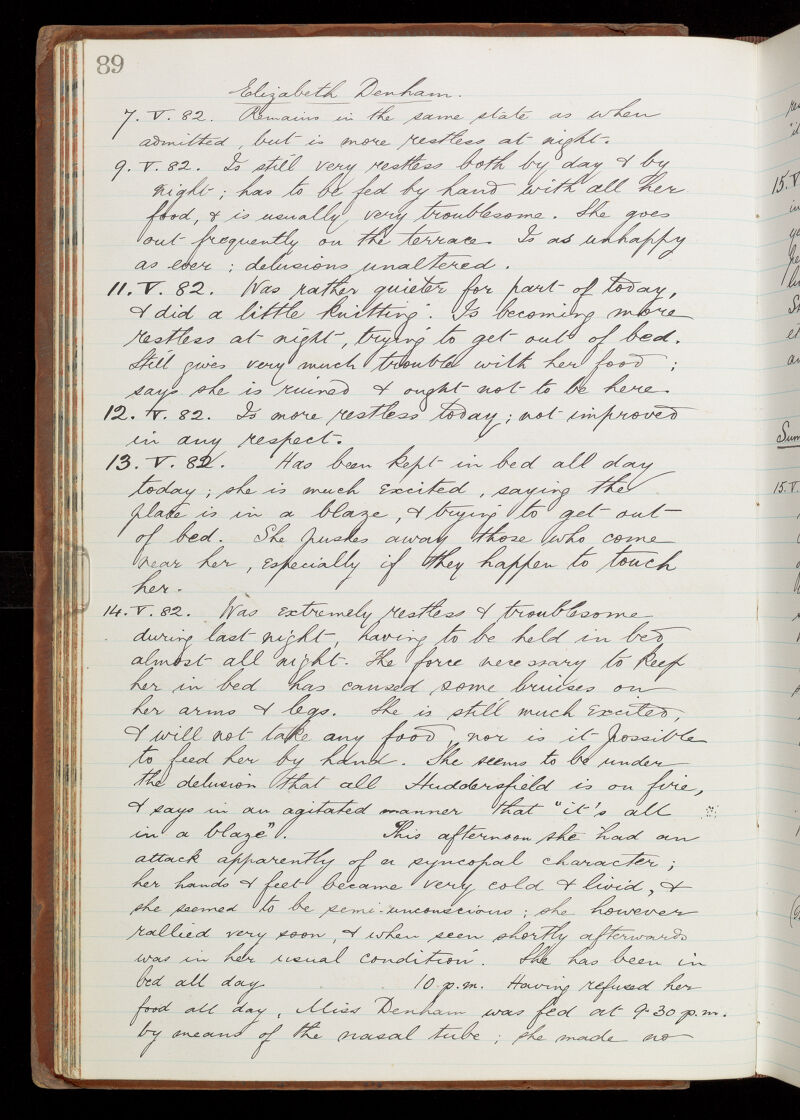 89
Elizabeth Denham.
7. V. 82. Remains in the same state as when
admitted, but is more restless at night.
9. V. 82. Is still very restless both by day & by
night; has to be fed by hand with all her
food, & is usually very troublesome. She goes
out frequently on the terrace. Is as unhappy
as ever; delusions unaltered.
11. V. 82. Was rather quieter for part of today,
& did a little knitting. Is becoming more
restless at night, trying to get out of bed.
Still gives very much trouble with her food;
says she is ruined & ought not to be here.
12. V. 82. Is more restless today; not improved
in any respect.
13. V. 82. Has been kept in bed all day
today; she is much excited, saying the
place is in a blaze, & trying to get out
of bed. She pushes away those who come
near her, especially if they happen to touch
her.
14. V. 82. Was extremely restless & troublesome
during last night, having to be held in bed
almost all night. The force necessary to keep
her in bed has caused some bruises on
her arms & legs. She is still much excited,
& will not take any food, nor is it possible
to feed her by hand. She seems to be under
the delusion that all Huddersfield is on fire,
& says in an agitated manner that "it's all
in a blaze". This afternoon she had an
attack apparently of a syncopal character;
her hands & feet became very cold & livid, &
she seemed to be semi-unconscious; she however
rallied very soon, & when seen shortly afterwards
was in her usual condition. She has been in
bed all day. 10 p.m. Having refused her
food all day, Miss Denham was fed at 9-30 p.m.
by means of the nasal tube; she made no
15. V.
Sum
15. V.